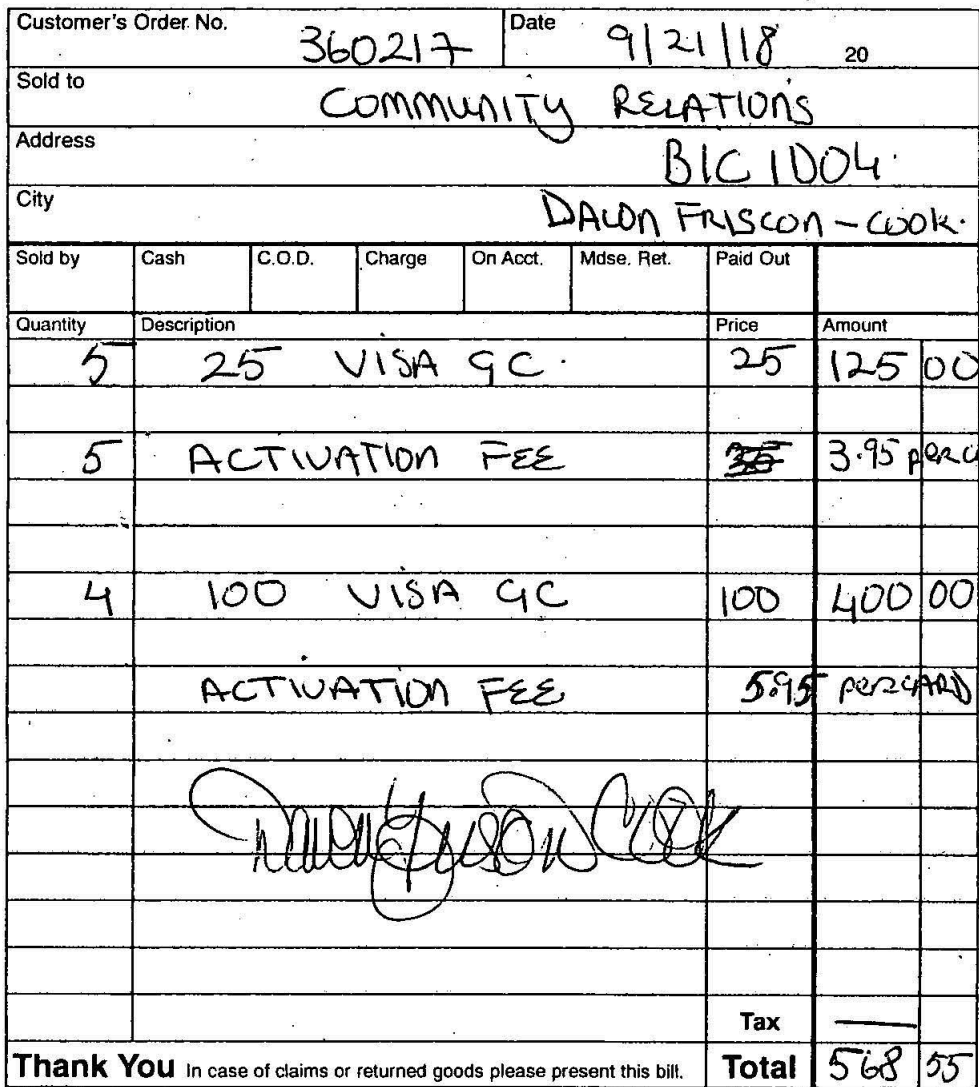 Customer's Order No. 360217 Date 9/21/18 20
Sold to COMMUNITY RELATIONS
Address BIC 1D04.
City DAWN FRISCON-COOK.
Sold by Cash C.O.D. Charge On Acct. Mdse. Ret. Paid Out
Quantity Description Price Amount
5 25 VISA GC. 25 125 00
5 ACTIVATION FEE 3.95 PER C
4 100 VISA GC 100 400 00
ACTIVATION FEE 5.95 PER CARD
Tax —
Thank You In case of claims or returned goods please present this bill. Total 568 55